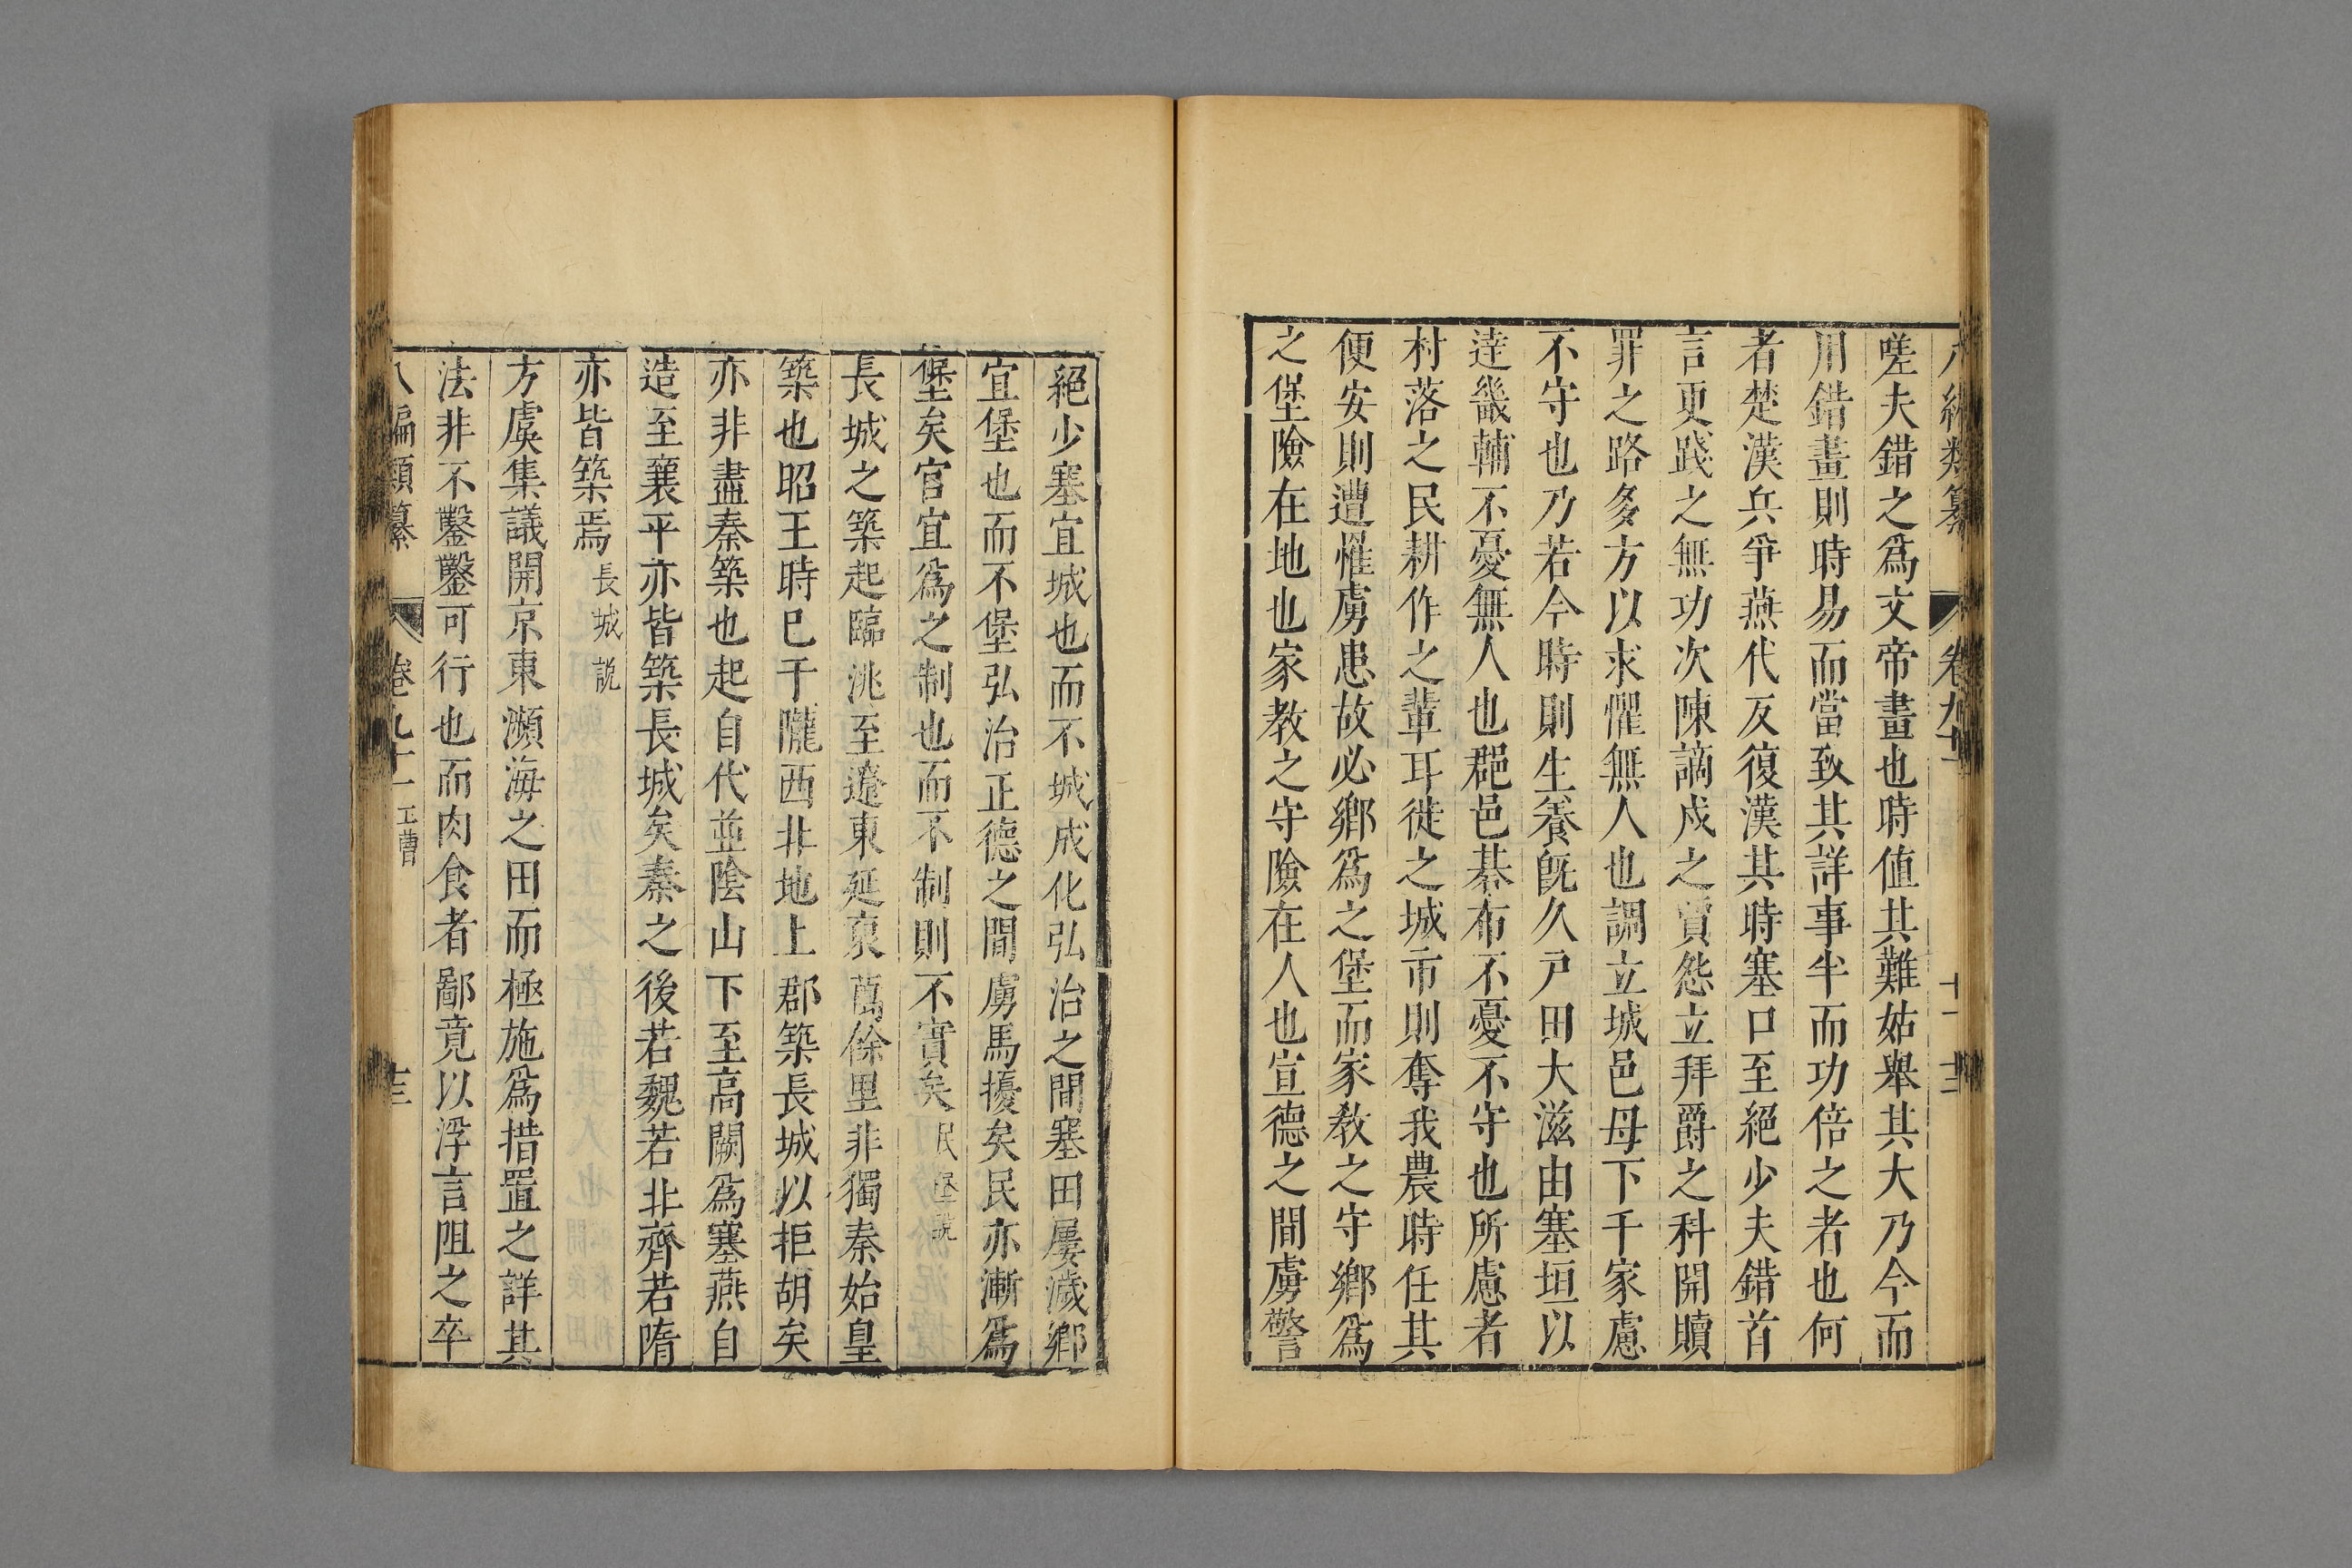 八編類纂 卷九十一 十二
嗟夫錯之爲文帝畫也時值其難姑舉其大乃今而
用錯畫則時易而當致其詳事半而功倍之者也何
者楚漢兵爭燕代反復漢其時塞口至絕少夫錯首
言更踐之無功次陳謫戍之賈怨立拜爵之科開贖
罪之路多方以求懼無人也調立城邑母下千家慮
不守也乃若今時則生養旣久戸田大滋由塞垣以
逹畿輔不憂無人也郡邑棊布不憂不守也所慮者
村落之民耕作之輩耳徙之城市則奪我農時任其
便安則遭罹虜患故必鄉爲之堡而家教之守鄉爲
之堡險在地也家教之守險在人也宣德之間虜警
絕少塞宜城也而不城成化弘治之間塞田屢濊鄉
宜堡也而不堡弘治正德之間虜馬擾矣民亦漸爲
堡矣官宜爲之制也而不制則不實矣民堡說
長城之築起臨洮至遼東延袤萬餘里非獨秦始皇
築也昭王時巳于隴西北地上郡築長城以拒胡矣
亦非盡秦築也起自代並陰山下至高闕爲塞燕自
造至襄平亦皆築長城矣秦之後若魏若北齊若隋
亦皆築焉長城説
方虞集議開京東瀕海之田而極施爲措置之詳其
法非不鑿鑿可行也而肉食者鄙竟以浮言阻之卒
八編類纂 卷九十一 工曹 十三